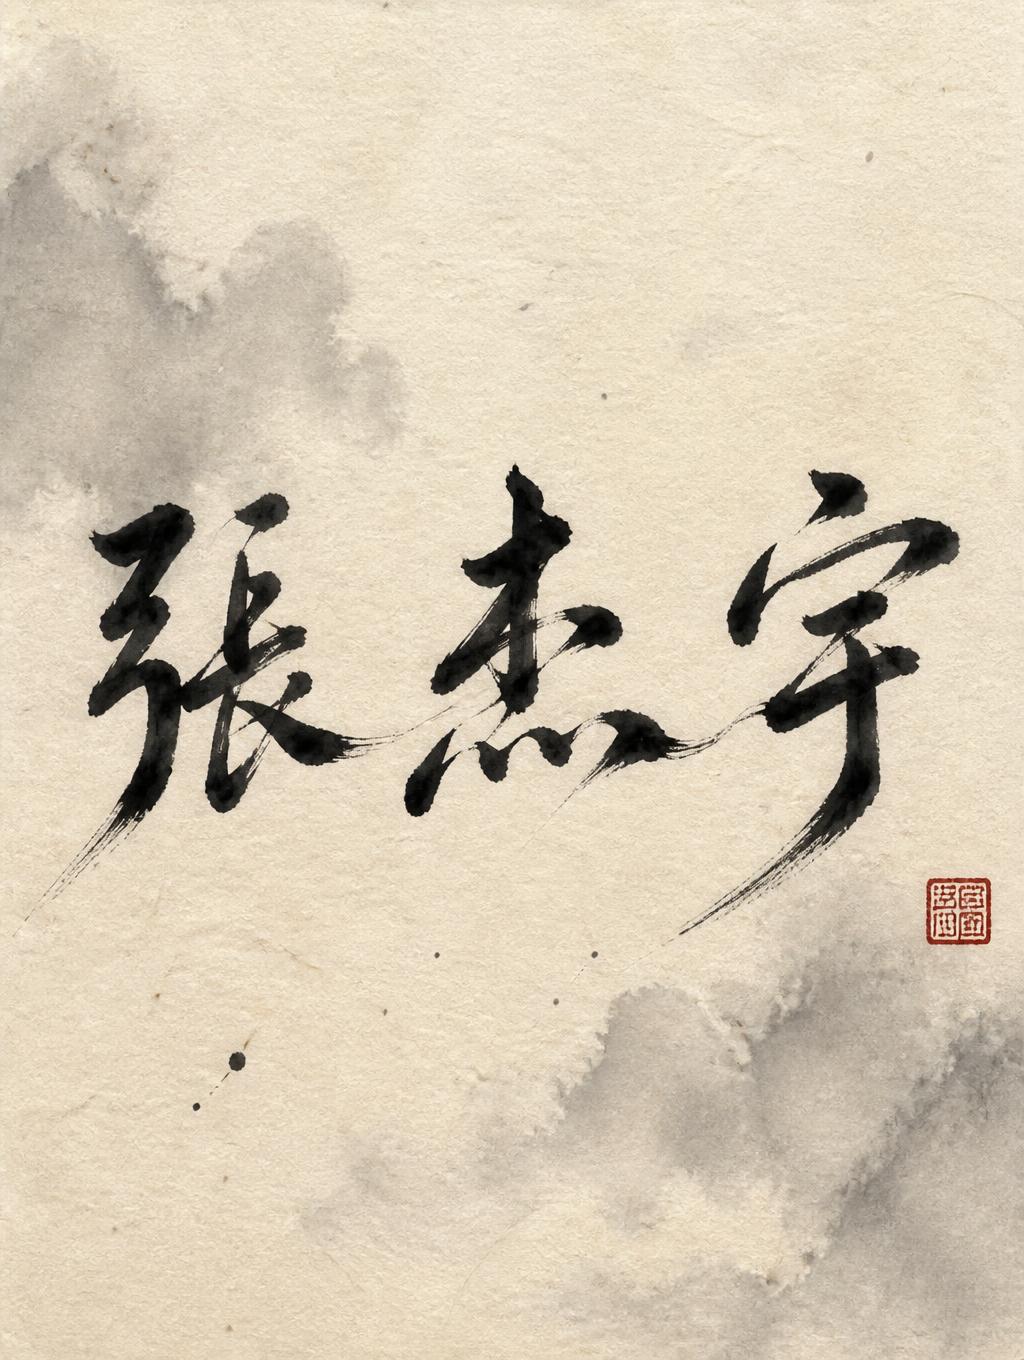 張杰宇